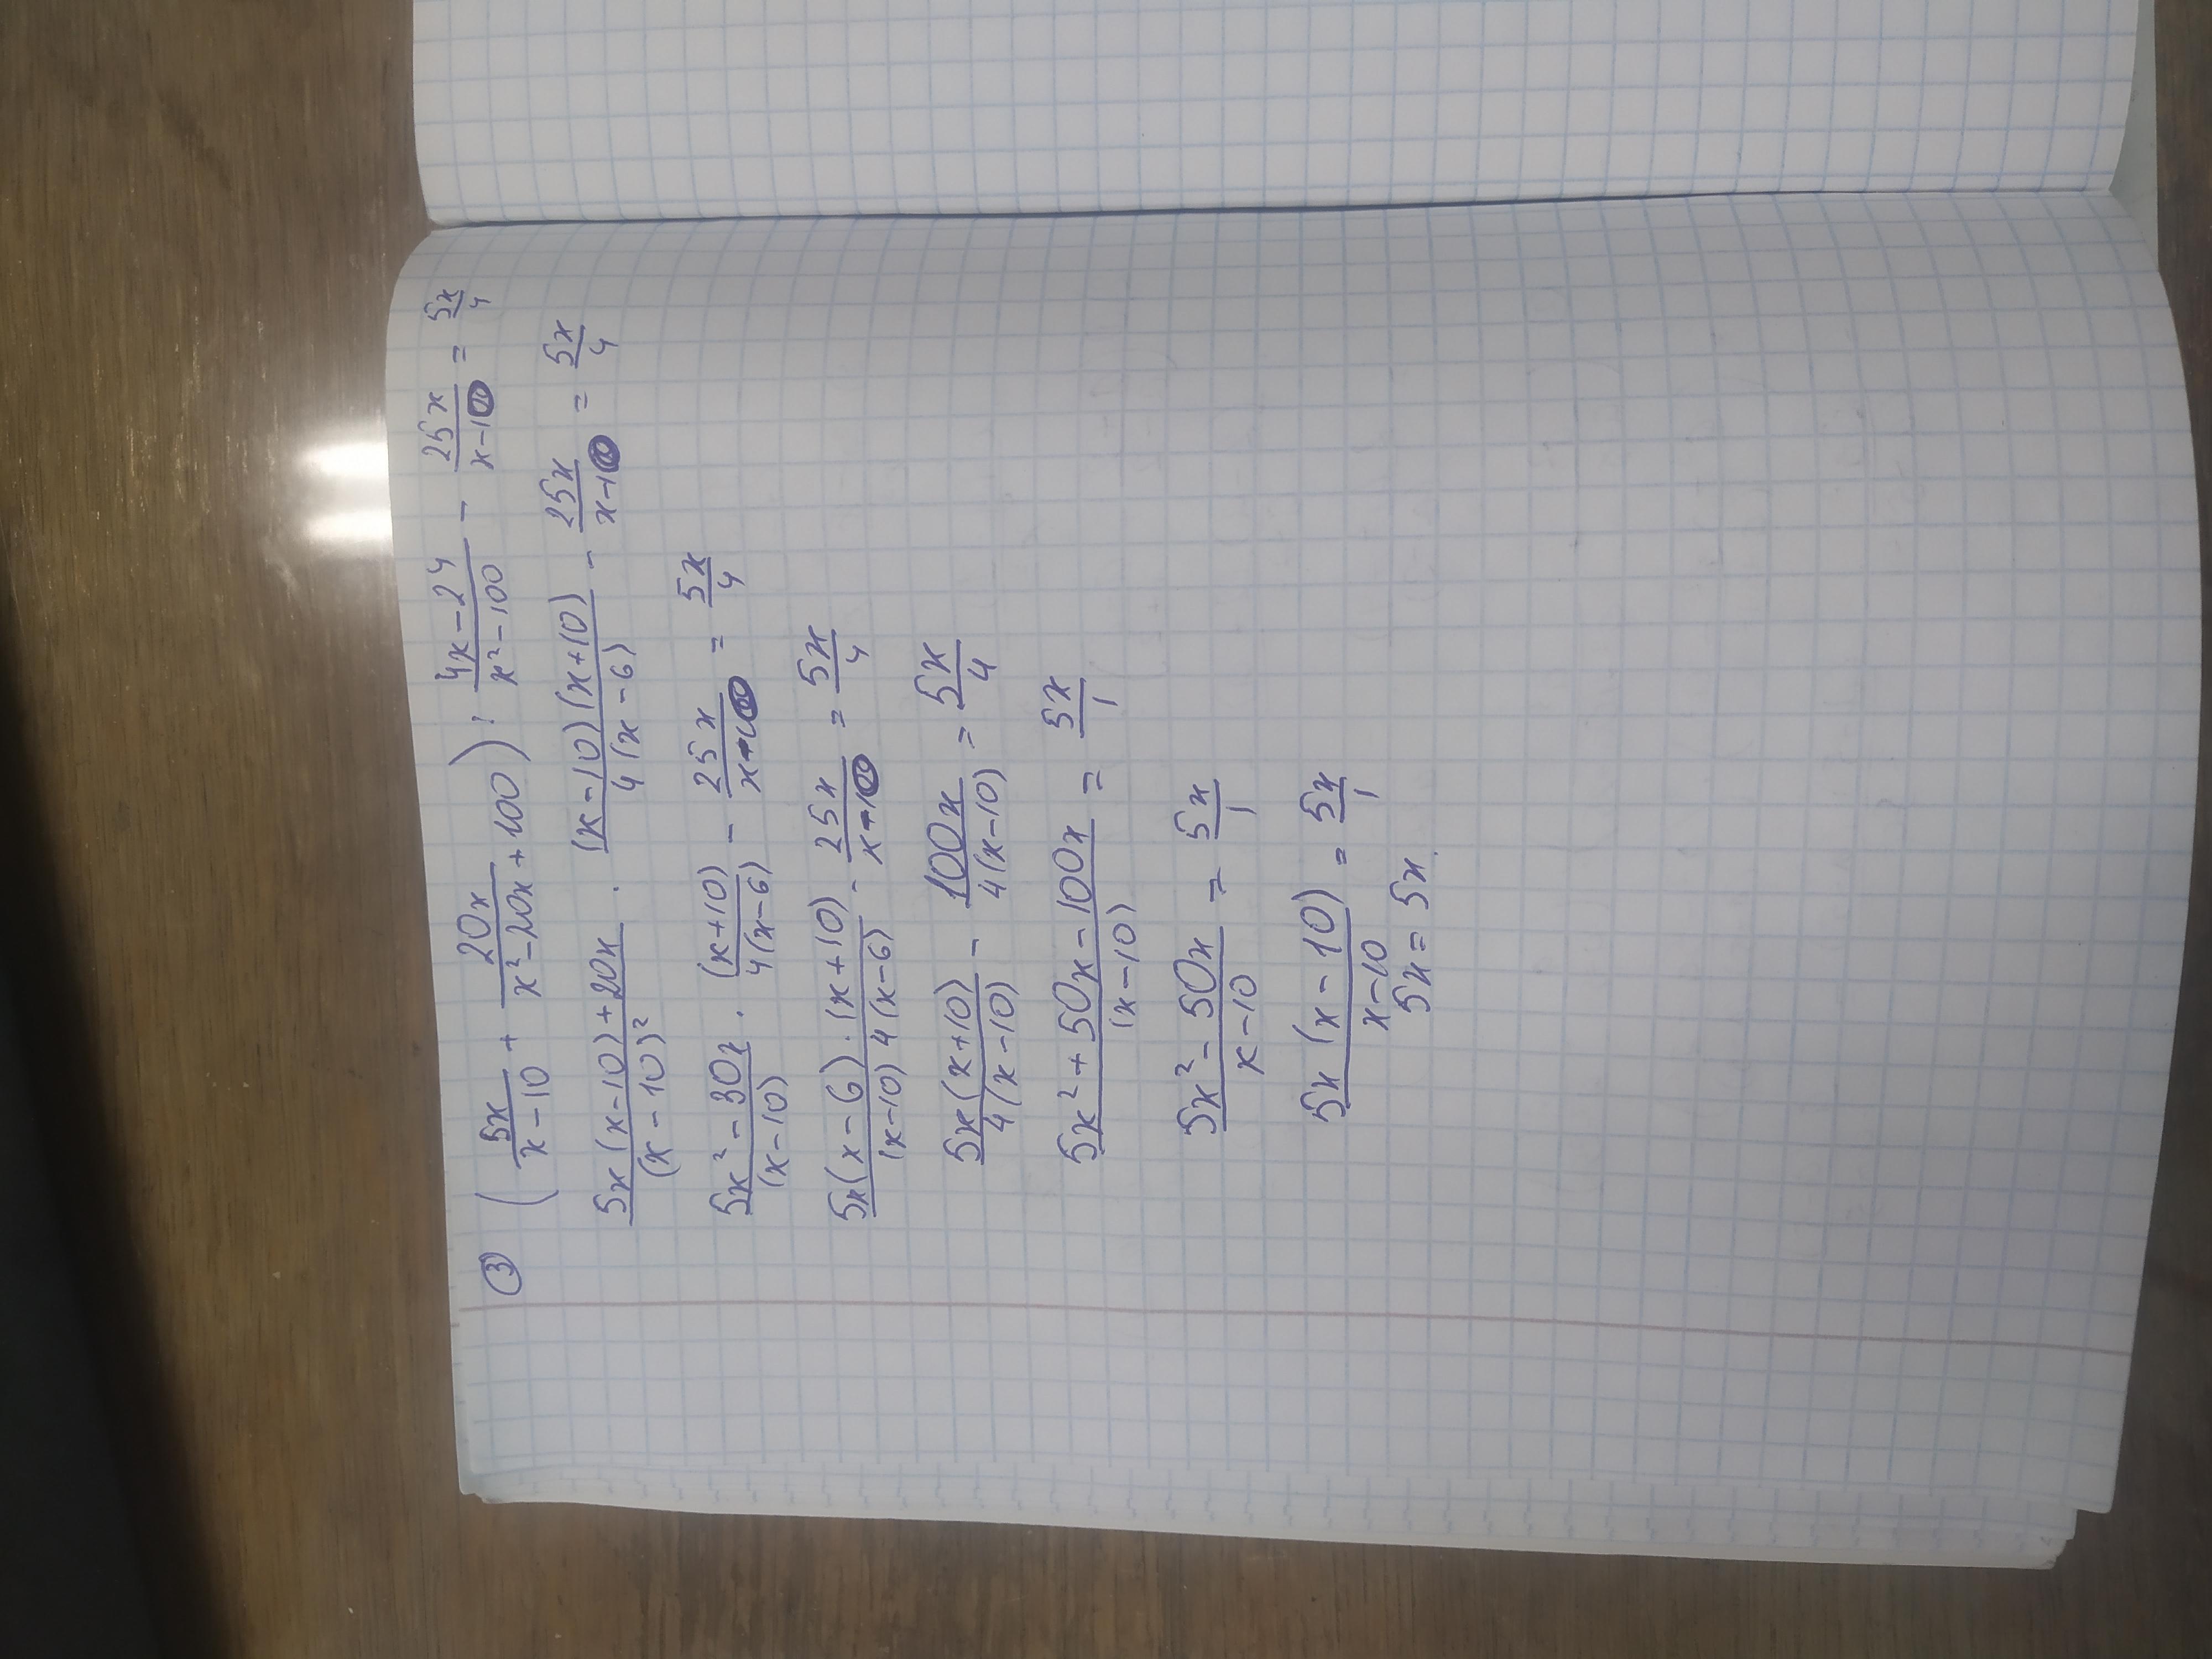 ③ (5x/(x-10) + 20x/(x²-20x+100)) : (4x-24)/(x²-100) - 25x/(x-10) = 5x/4
(5x(x-10)+20x)/(x-10)² · ((x-10)(x+10))/(4(x-6)) - 25x/(x-10) = 5x/4
(5x²-30x)/(x-10) · (x+10)/(4(x-6)) - 25x/(x-10) = 5x/4
(5x(x-6)·(x+10))/((x-10)4(x-6)) - 25x/(x-10) = 5x/4
5x(x+10)/4(x-10) - 100x/4(x-10) = 5x/4
(5x²+50x-100x)/(x-10) = 5x/1
(5x²-50x)/(x-10) = 5x/1
5x(x-10)/(x-10) = 5x/1
5x=5x.